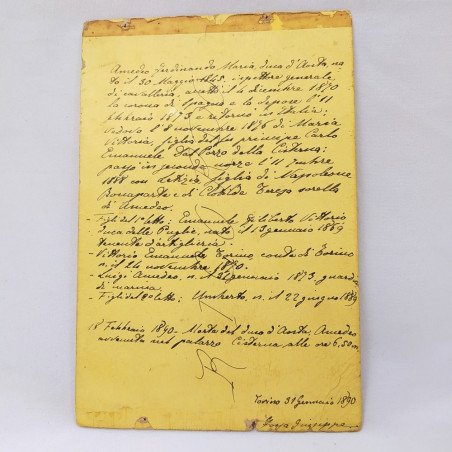 Amedeo Ferdinando Maria, duca d'Aosta, na
to il 30 Maggio 1845. ispettore generale
di cavalleria, accettò il 4 dicembre 1870
la corona di Spagna e la depose l'11
febbraio 1873 e ritornò in Italia;
vedovo l'8 novembre 1876 di Maria
Vittoria, figlia del fu principe Carlo
Emanuele Dal Pozzo della Cisterna;
passò in seconde nozze l'11 7mbre
1888 con Letizia figlia di Napoleone
Bonaparte e di Clotilde sorella
di Amedeo.
- Figli del 1° letto: Emanuele Filiberto Vittorio
duca delle Puglie, nato il 13 gennaio 1869
tenente d'artiglieria.
- Vittorio Emanuele Torino conte di Torino
n. il 24 novembre 1870.
- Luigi Amedeo, n. il gennaio 1873, guardia
di marina.
- Figli del 2° letto: Umberto, n. il 22 giugno 1889
18 Febbraio 1890 - Morte del duca d'Aosta, Amedeo
avvenuta nel palazzo Cisterna alle ore 6,50 m.
Torino 31 Gennaio 1890
Giuseppe